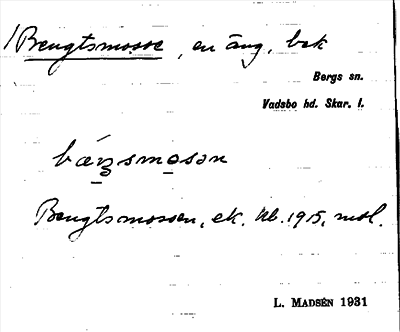 Bengtsmosse, en äng, bek
Bergs sn.
Vadsbo hd. Skar. l.
Bengtsmossen, ek. kb. 1915, msl.
L. MADSÉN 1931